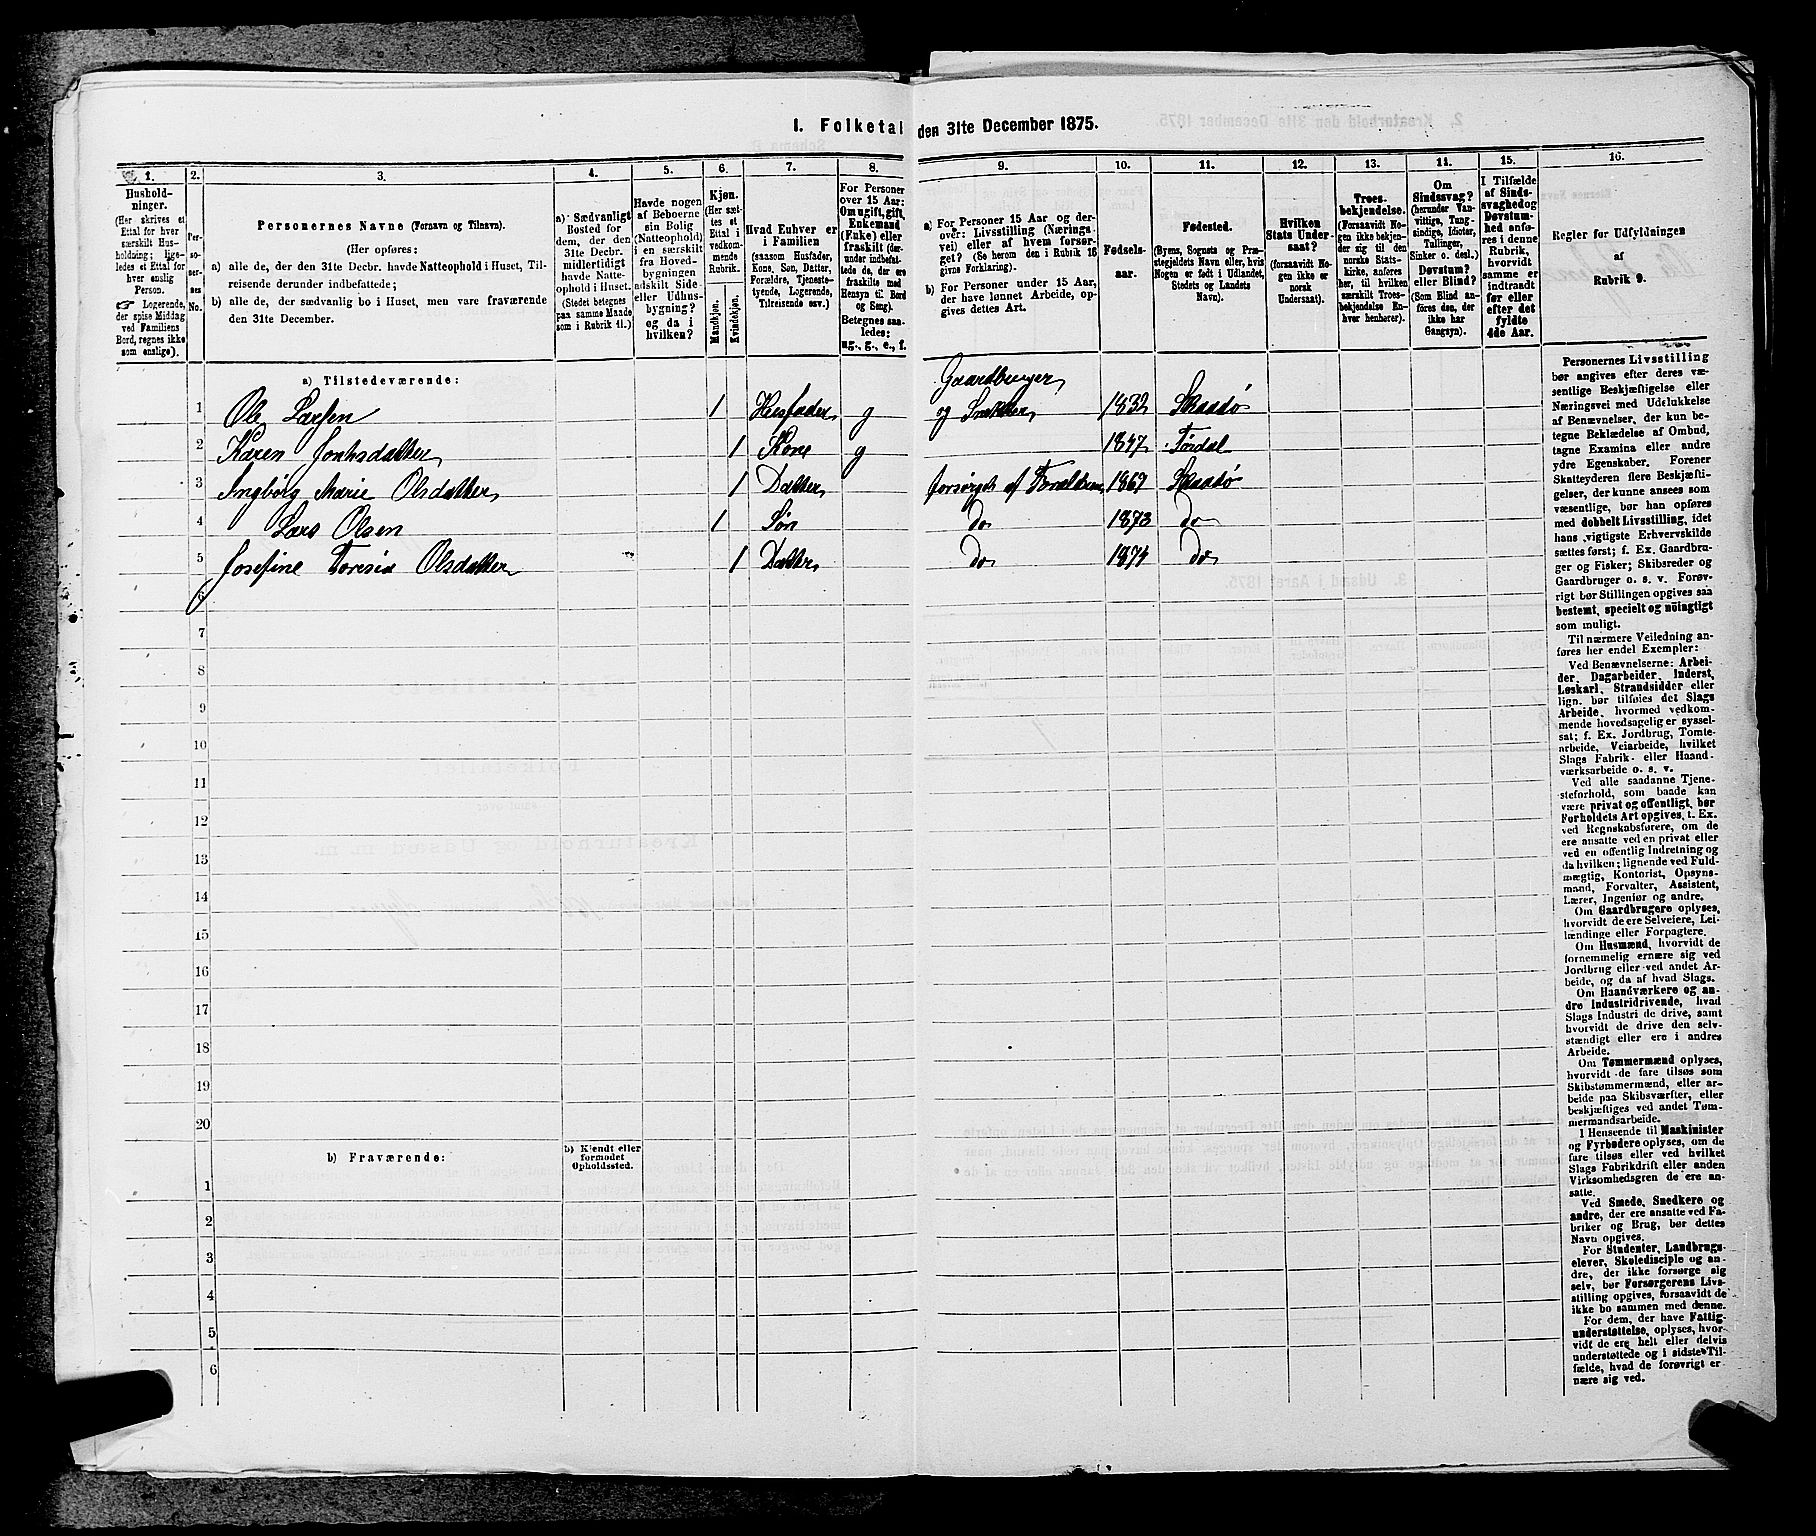 1. Folketal den 31te December 1875.
1. 2. 3. 4. 5. 6. 7. 8. 9. 10. 11. 12. 13. 14. 15. 16.
Hushold-
ninger.
(Her skrives et
Ettal for hver
særskilt Hus-
holdning; lige-
ledes et Ettal for
hver enslig
Person.
☞ Logerende,
der spise Middag
ved Familiens
Bord, regnes ikke
som enslige).
Per-
so-
ner-
nes
No.
Personernes Navne (Fornavn og Tilnavn).
(Her opføres:
a) alle de, der den 31te Decbr. havde Natteophold i Huset, Til-
reisende derunder indbefattede;
b) alle de, der sædvanlig bo i Huset, men vare fraværende
den 31te December.
a) Sædvanligt
Bosted for
dem, der den
31te Decbr.
midlertidigt
havde Natte-
ophold i Huset.
(Stedet betegnes
paa samme Maade
som i Rubrik 11.)
Havde nogen
af Beboerne
sin Bolig
(Natteophold)
i en særskilt
fra Hoved-
bygningen
adskilt Side-
eller Udhus-
bygning?
og da i
hvilken?
Kjøn.
(Her sæt-
tes et
Ettal i
vedkom-
mende
Rubrik.
Mandkjøn.
Kvindekjøn.
Hvad Enhver er
i Familien
(saasom Husfader,
Kone, Søn, Datter,
Forældre, Tjeneste-
tyende, Logerende,
Tilreisende osv.)
For Personer
over 15 Aar:
Om ugift, gift,
Enkemand
(Enke) eller
fraskilt (der-
under indbefat-
tede de, der ere
fraskilte med
Hensyn til Bord
og Seng).
Betegnes saa-
ledes:
ug., g., e., f.
a) For Personer 15 Aar og der-
over: Livsstilling (Nærings-
vei) eller af hvem forsør-
get? (Se herom den i Rubrik 16
givne Forklaring).
b) For Personer under 15 Aar,
der have lønnet Arbeide, op-
gives dettes Art.
Fødsels-
aar.
Fødested.
(Byens, Sognets og Præ-
stegjeldets Navn eller, hvis
Nogen er født i Udlandet,
Stedets og Landets
Navn).
Hvilken
Stats Under-
saat?
(forsaavidt No-
gen ikke er
norsk
Undersaat).
Troes-
bekjendelse.
(Forsaavidt No-
gen ikke bekjen-
der sig til den
norske Stats-
kirke, anføres
her, til hvilken
særskilt Troes-
bekjendelse En-
hver henhører).
Om
Sindssvag?
(herunder Van-
vittige, Tung-
sindige, Idioter,
Tullinger,
Sinker o. desl.)
Døvstum?
eller Blind?
(Som Blind an-
føres den, der
ikke har
Gangsyn).
I Tilfælde
af Sinds-
svaghed og
Døvstum-
hed anfø-
res i denne
Rubrik,
hvorvidt
samme er
indtraadt
før eller
efter det
fyldte
4de Aar.
Regler for Udfyldningen
af
Rubrik 9.
a) Tilstedeværende:
1 Ole Larsen 1 Husfader g Gaardbruger og Snekker 1832 Skaadø
2 Karen Jonhsdatter 1 Kone g 1847 Tørdal
3 Ingbørg Marie Olsdatter 1 Datter forsørget af Forældrene 1869 Skaadø
4 Lars Olsen 1 Søn do 1873 do
5 Josefine Toresia Olsdatter 1 Datter do 1874 do
6
7
8
9
10
11
12
13
14
15
16
17
18
19
20
b) Fraværende:
b) Kjendt eller
formodet
Opholdssted.
1
2
3
4
5
6
Personernes Livsstilling
bør angives efter deres væ-
sentlige Beskjæftigelse eller
Næringsvei med Udelukkelse
af Benævnelser, der kun be-
tegne Beklædelse af Ombud,
tagne Examina eller andre
ydre Egenskaber. Forener
Skatteyderen flere Beskjæfti-
gelser, der kunne ansees som
væsentlige, bør han opføres
med dobbelt Livsstilling, idet
hans vigtigste Erhvervskilde
sættes først; f. Ex. Gaardbru-
ger og Fisker; Skibsreder og
Gaardbruger o. s. v. Forøv-
rigt bør Stillingen opgives saa
bestemt, specielt og nöiagtigt
som muligt.
Til nærmere Veiledning an-
føres her endel Exempler:
Ved Benævnelserne: Arbei-
der, Dagarbeider, Inderst,
Løskarl, Strandsidder eller
lign. bør tilføies det Slags
Arbeide, hvormed vedkom-
mende hovedsagelig er syssel-
sat; f. Ex. Jordbrug, Tomte-
arbeide, Veiarbeide, hvilket
Slags Fabrik- eller Haand-
værksarbeide o. s. v.
Ved alle saadanne Tjene-
steforhold, som baade kan
være privat og offentligt, bør
Forholdets Art opgives, f. Ex.
ved Regnskabsførere, om de
ere ansatte ved en privat eller
ved en offentlig Indretning og
da hvilken; lignende ved Fuld-
mægtig, Kontorist, Opsyns-
mand, Forvalter, Assistent,
Lærer, Ingeniør og andre.
Om Gaardbrugere oplyses,
hvorvidt de ere Selveiere, Lei-
lændinge eller Forpagtere.
Om Husmænd, hvorvidt de
fornemmelig ernære sig ved
Jordbrug eller ved andet Ar-
beide, og da af hvad Slags.
Om Haandværkere og an-
dre Industridrivende, hvad
Slags Industri de drive, samt
hvorvidt de drive den selv-
stændigt eller ere i andres
Arbeide.
Om Tømmermænd oplyses,
hvorvidt de fare tilsøs som
Skibstømmermænd, eller ar-
beide paa Skibsværfter, eller
beskjæftiges ved andet Tøm-
mermandsarbeide.
I Henseende til Maskinister
og Fyrbødere oplyses, om de
fare tilsøs eller ved hvilket
Slags Fabrikdrift eller anden
Virksomhedsgren de ere an-
satte.
Ved Smede, Snedkere og
andre, der ere ansatte ved Fa-
briker og Brug, bør dettes
Navn opgives.
For Studenter, Landbrugs-
elever, Skoledisciple og an-
dre, der ikke forsørge sig
selv, bør Forsørgerens Livs-
stilling opgives, forsaavidt de
ikke bo sammen med denne.
For dem, der have Fattig-
understøttelse, oplyses, hvor-
vidt de ere helt eller delvis
understøttede og i sidste Til-
fælde, hvad de forøvrigt er-
nære sig ved.